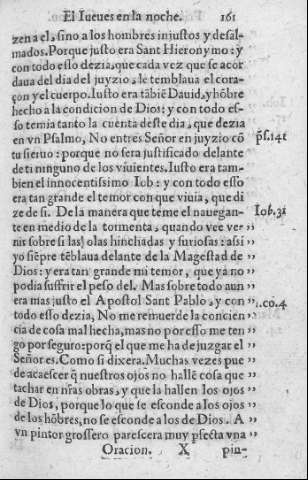 El Iueues en la noche. 161
zen a el, sino a los hombres injustos y desal-
mados. Porque justo era Sant Hieronymo: y
con todo esso dezia, que cada vez que se acor
daua del dia del juyzio, le temblaua el cora-
çon y el cuerpo. Iusto era tãbiẽ Dauid, y hõbre
hecho a la condicion de Dios: y con todo es-
so temia tanto la cuenta deste dia, que dezia
en vn Psalmo, No entres Señor en juyzio cõ ps.141
tu sieruo: porque no sera justificado delante
de ti ninguno de los viuientes. Iusto era tam-
bien el innocentissimo Iob: y con todo esso
era tan grande el temor con que viuia, que di
ze de si. De la manera que teme el nauegan- Iob.31
te en medio de la tormenta, quando vee ve- ”
nir sobre si las olas hinchadas y furiosas: assi ”
yo siẽpre tẽblaua delante de la Magestad de ”
Dios: y era tan grande mi temor, que ya no ”
podia suffrir el peso del. Mas sobre todo aun
era mas justo el Apostol Sant Pablo, y con 1.co.4
todo esso dezia, No me remuerde la concien ”
cia de cosa mal hecha, mas no por esso me ten ”
go por seguro: porq̃ el que me ha de juzgar el ”
Señor es. Como si dixera. Muchas vezes pue ”
de acaescer q̃ nuestros ojos no hallẽ cosa que ”
tachar en nr̃as obras, y que la hallen los ojos ”
de Dios, porque lo que se esconde a los ojos ”
de los hõbres, no se esconde a los de Dios. A ”
vn pintor grossero parescera muy pfecta vna ”
Oracion. X pin-